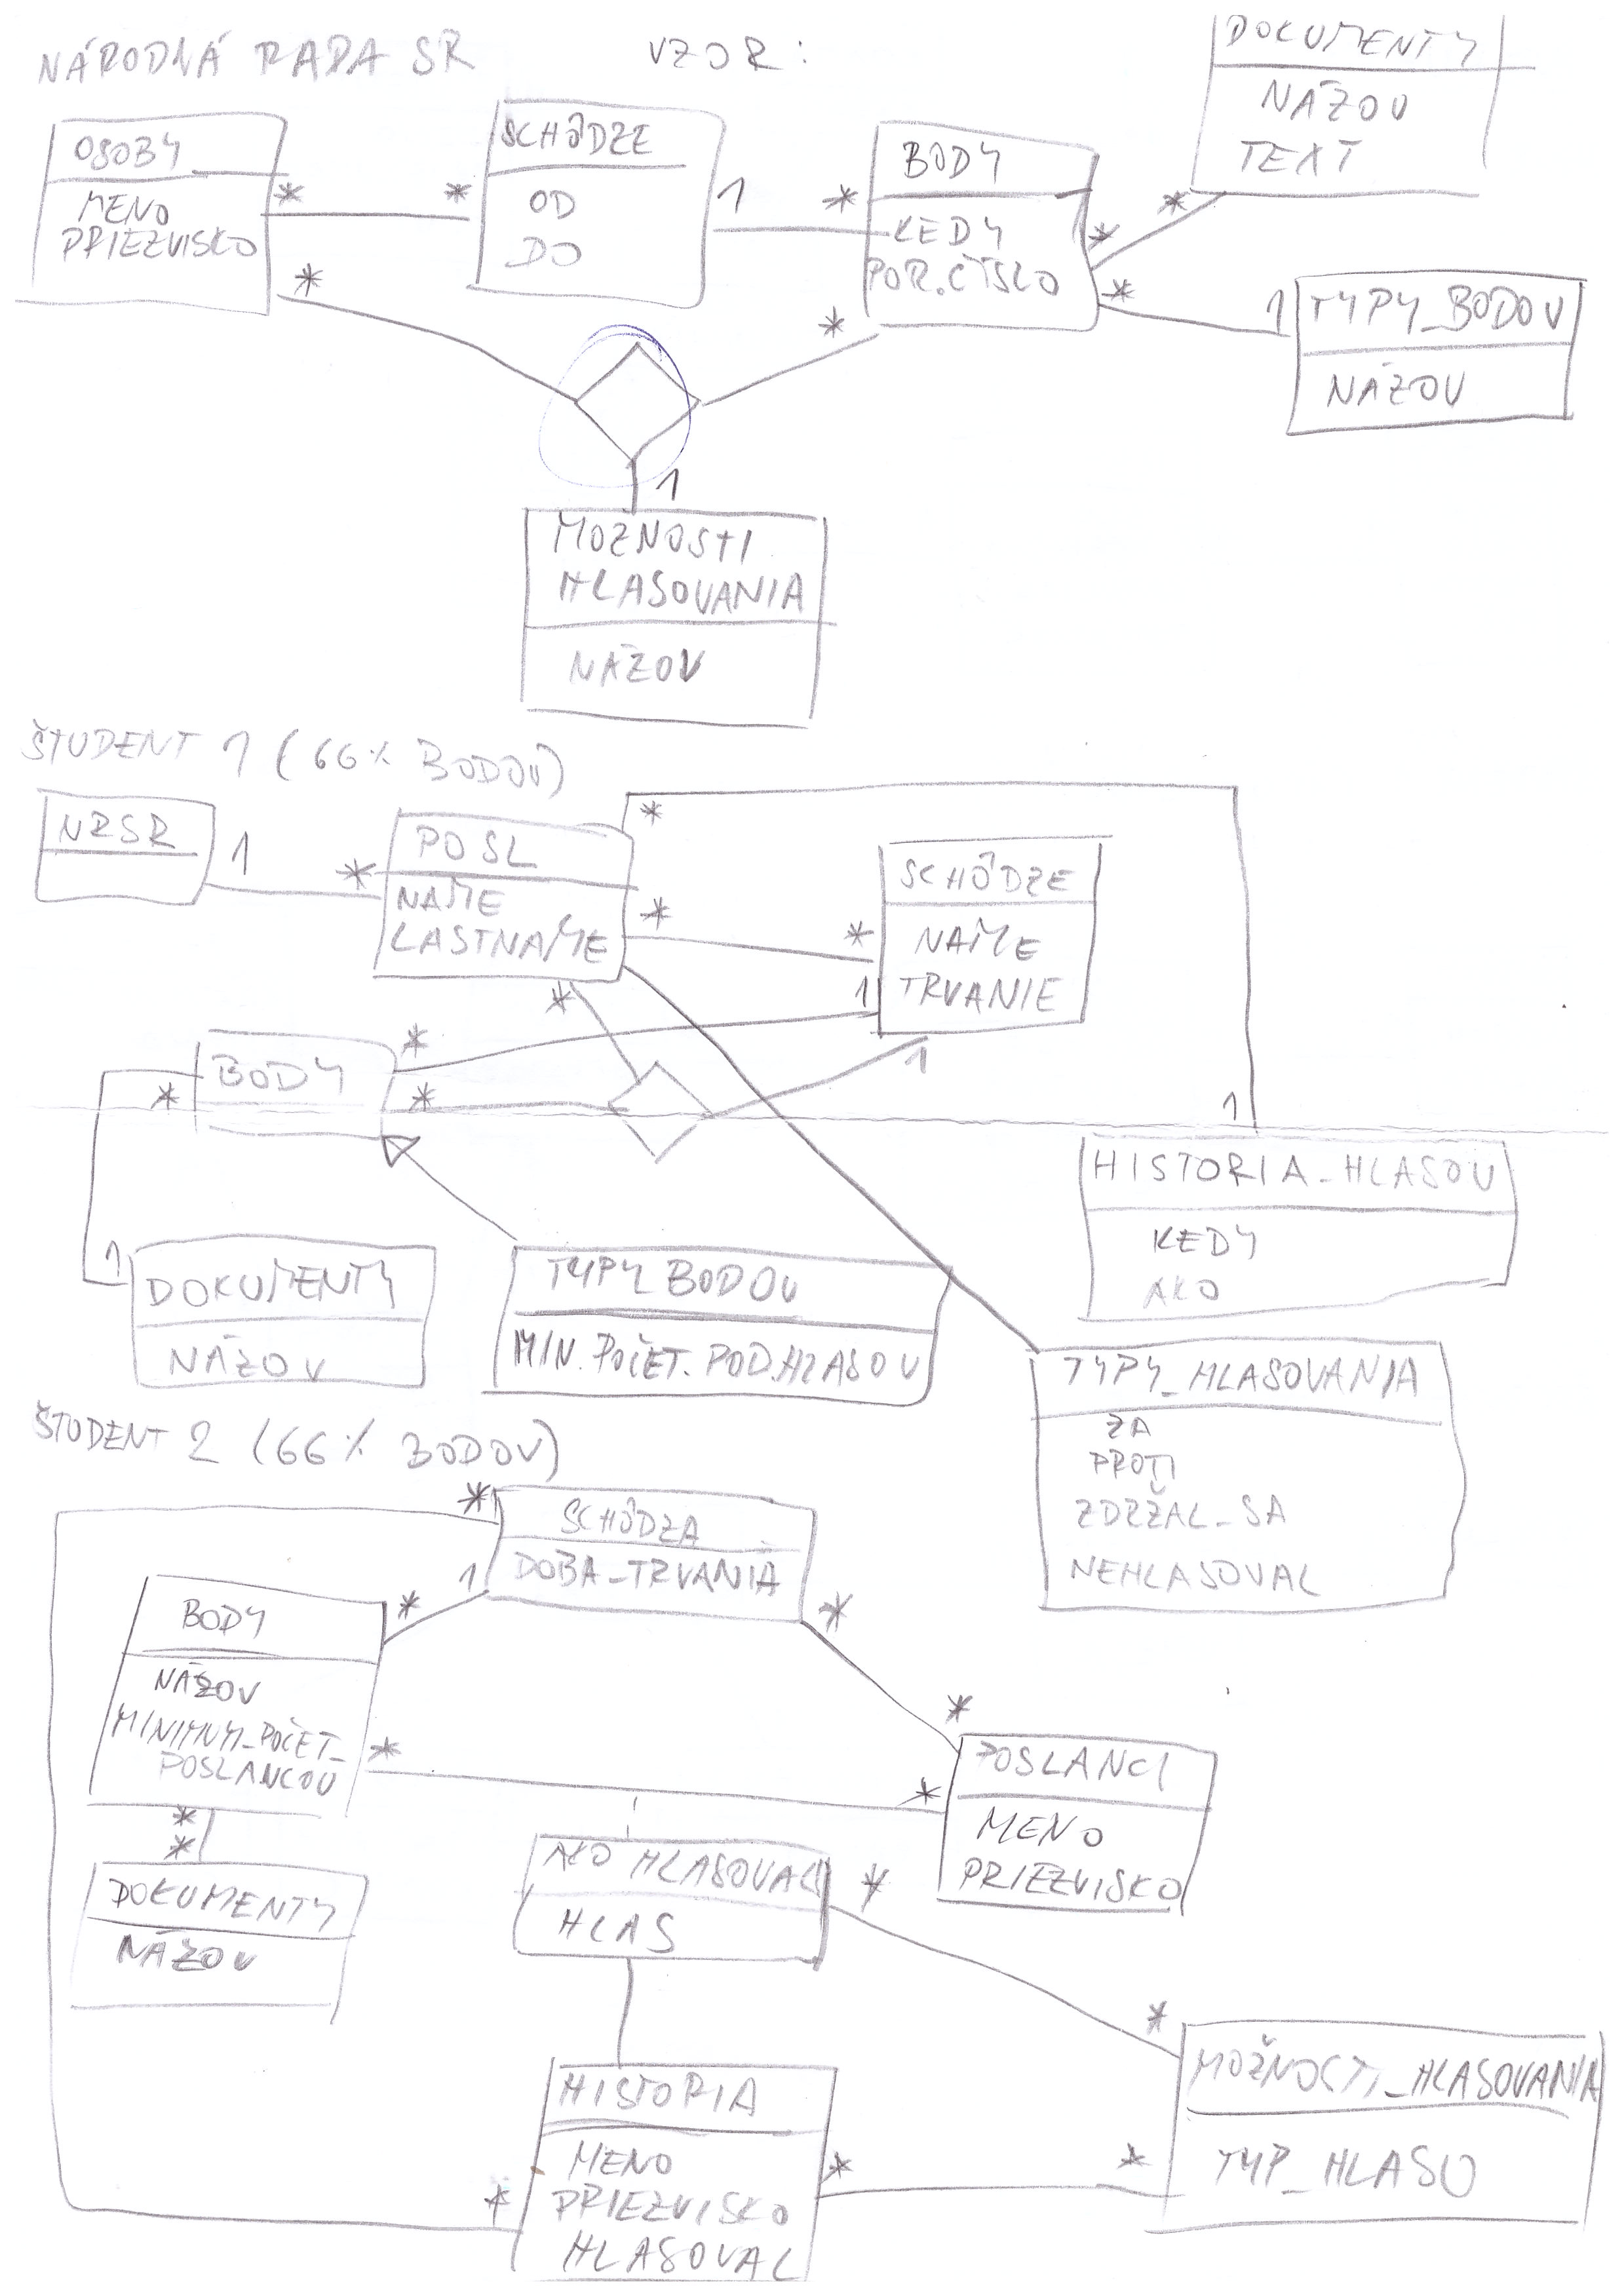 NÁRODNÁ RADA SR
VZOR:
OSOBY
MENO
PRIEZVISKO
*
*
SCHÔDZE
OD
DO
1
*
BODY
KEDY
POR. ČÍSLO
*
*
DOKUMENTY
NÁZOV
TEXT
*
1
TYPY_BODOV
NÁZOV
*
*
1
MOZNOSTI
HLASOVANIA
NÁZOV
ŠTUDENT 1 (66% BODOV)
NRSR
1
*
POSL
NAME
LASTNAME
*
*
*
SCHÔDZE
NAME
TRVANIE
*
1
*
1
BODY
*
*
1
1
HISTORIA_HLASOV
KEDY
AKO
1
DOKUMENTY
NÁZOV
TYPY BODOV
MIN. POČET. POD.HLASOV
TYPY_HLASOVANIA
ZA
PROTI
ZDRŽAL_SA
NEHLASOVAL
ŠTUDENT 2 (66% BODOV)
*
SCHÔDZA
DOBA_TRVANIA
1
*
*
BODY
NÁZOV
MINIMUM_POČET_
POSLANCOV
*
*
*
POSLANCI
MENO
PRIEZVISKO
*
*
DOKUMENTY
NÁZOV
AKO HLASOVAL
HLAS
*
*
MOŽNOSTI_HLASOVANIA
TYP_HLASU
HISTORIA
MENO
PRIEZVISKO
HLASOVAL
*
*
*